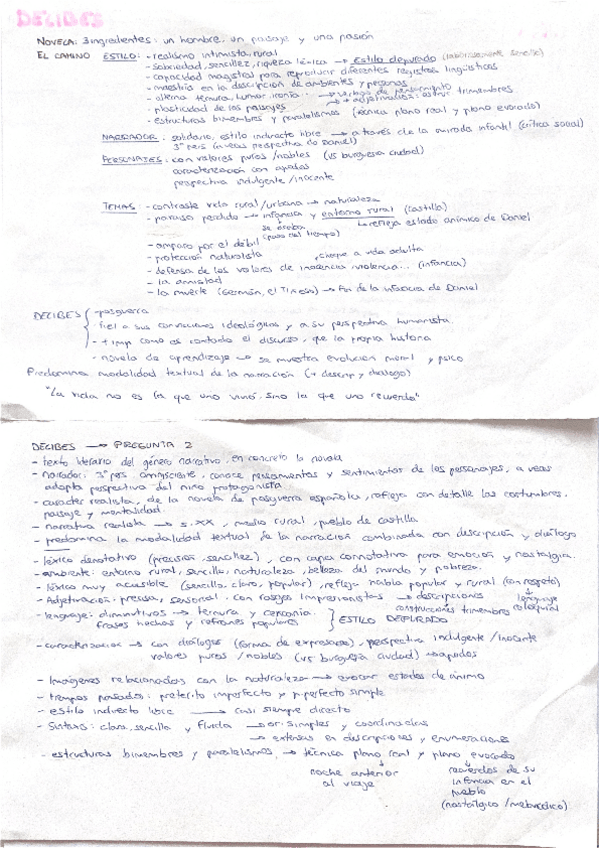 DELIBES
NOVELA: 3 ingredientes: un hombre, un paisaje y una pasión
EL CAMINO ESTILO: - realismo intimista, rural
- sobriedad, sencillez, riqueza léxica → estilo depurado (laboriosamente sencillo)
- capacidad magistral para reproducir diferentes registros lingüísticos
- maestría en la descripción de ambientes y personas
- alterna ternura, humor, ironía → verbos de pensamiento
→ + adjetivación: estruc. trimembres
- plasticidad de los paisajes
- estructuras bimembres y paralelismos (técnica plano real y plano evocado)
NARRADOR: solidario, estilo indirecto libre → a través de la mirada infantil (crítica social)
3ª pers (a veces perspectiva de Daniel)
PERSONAJES: con valores puros/nobles (vs burguesía ciudad)
caracterización con apodos
perspectiva indulgente/inocente
TEMAS: - contraste vida rural/urbana → naturaleza
- paraíso perdido → infancia y entorno rural (Castilla)
se acaban (paso del tiempo)
↳ refleja estado anímico de Daniel
- amparo por el débil
- protección naturalista
choque a vida adulta
- defensa de los valores de inocencia, violencia... (infancia)
- la amistad
- la muerte (Germán, el Tiñoso) → Fin de la infancia de Daniel
DELIBES - posguerra
- fiel a sus convicciones ideológicas y a su perspectiva humanista.
- + imp como es contado el discurso, que la propia historia
- novela de aprendizaje → se muestra evolución moral y psico
Predomina modalidad textual de la narración (+ descrip y diálogo)
"La vida no es la que uno vivió, sino la que uno recuerda"
DELIBES → PREGUNTA 2
- texto literario del género narrativo, en concreto la novela
- narrador: 3ª pers. omnisciente, conoce pensamientos y sentimientos de los personajes, a veces
adopta perspectiva del niño protagonista
- carácter realista, de la novela de posguerra española, refleja con detalle las costumbres,
paisaje y mentalidad.
- narrativa realista → s. XX, medio rural, pueblo de castilla
- predomina la modalidad textual de la narración combinada con descripción y diálogo
- léxico denotativo (precisión, sencillez), con capa connotativa para emoción y nostalgia.
- ambiente: entorno rural, sencillo, naturaleza, belleza del mundo y pobreza.
- léxico muy accesible (sencillo, claro, popular), refleja habla popular y rural (con respeto)
- Adjetivación: precisa, sensorial, con rasgos impresionistas → descripciones
construcciones trimembres
lenguaje coloquial
- lenguaje: diminutivos → ternura y cercanía.
frases hechas y refranes populares
ESTILO DEPURADO
- caracterización → con diálogos (forma de expresarse), perspectiva indulgente/inocente
valores puros/nobles (vs burguesía ciudad) → apodos
- Imágenes relacionadas con la naturaleza → evocar estados de ánimo
- tiempos pasados: pretérito imperfecto y p. perfecto simple
- estilo indirecto libre → casi siempre directo
- Sintaxis: clara, sencilla y fluida → or. simples y coordinadas
→ extensas en descripciones y enumeraciones
- estructuras bimembres y paralelismos → técnica plano real y plano evocado
noche anterior al viaje
recuerdos de su infancia en el pueblo
(nostálgico/melancólico)